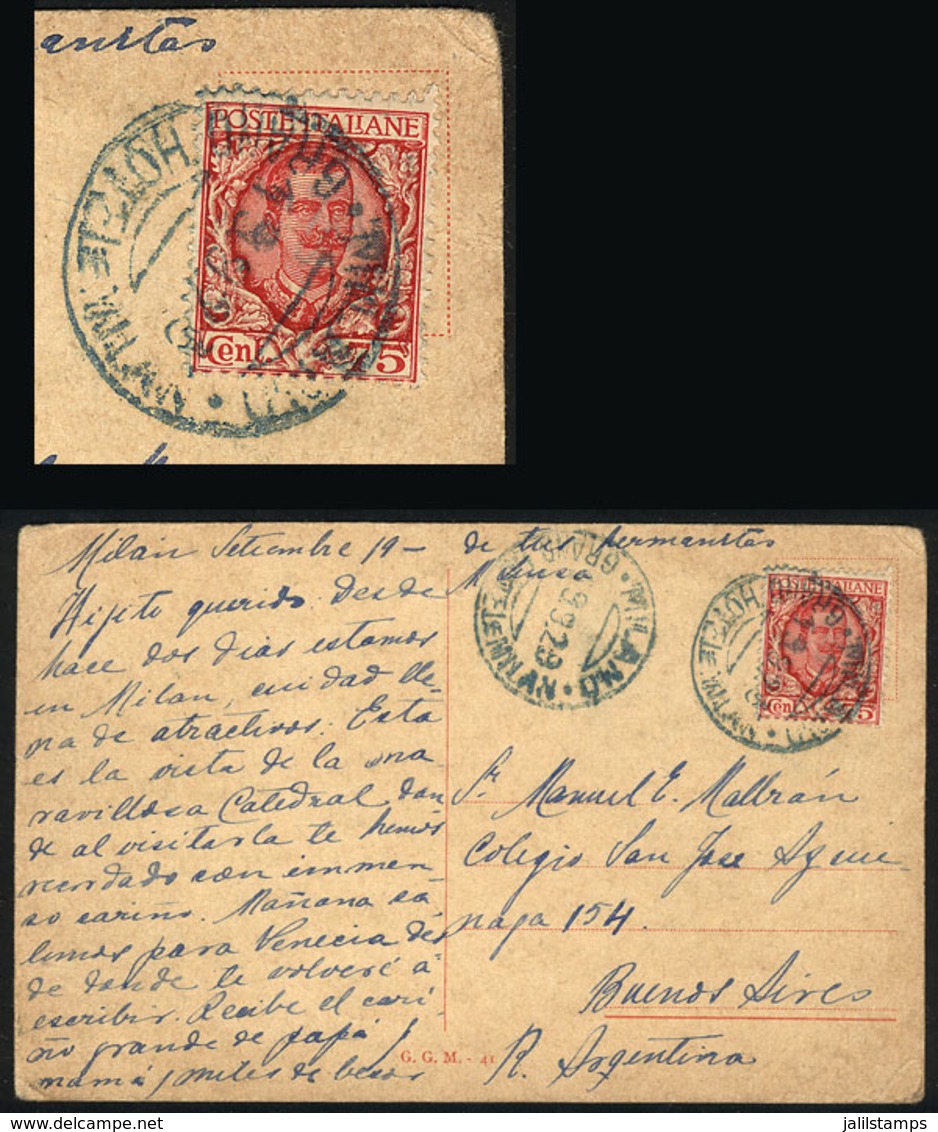 anitas
POSTE ITALIANE
Cent 75
Milán Setiembre 19-
Hijito querido. Desde
hace dos dias estamos
en Milan, cuidad lle-
na de atractivos. Esta
es la vista de la ma
ravillosa Catedral don
de al visitarla te hemos
recordado con inmen-
so cariño. Mañana sa
limos para Venecia des
de donde te volveré á-
escribir. Recibe el cari
ño grande de papá y
mamá y miles de besos
de tus hermanitas
MILANO
GRAND HOTEL
19.9.29
POSTE ITALIANE
Cent 75
Sr. Manuel E. Mallrán
Colegio San Jose Azcue
naga 154.
Buenos Aires
R. Argentina
G. G. M. - 41
jalilstamps